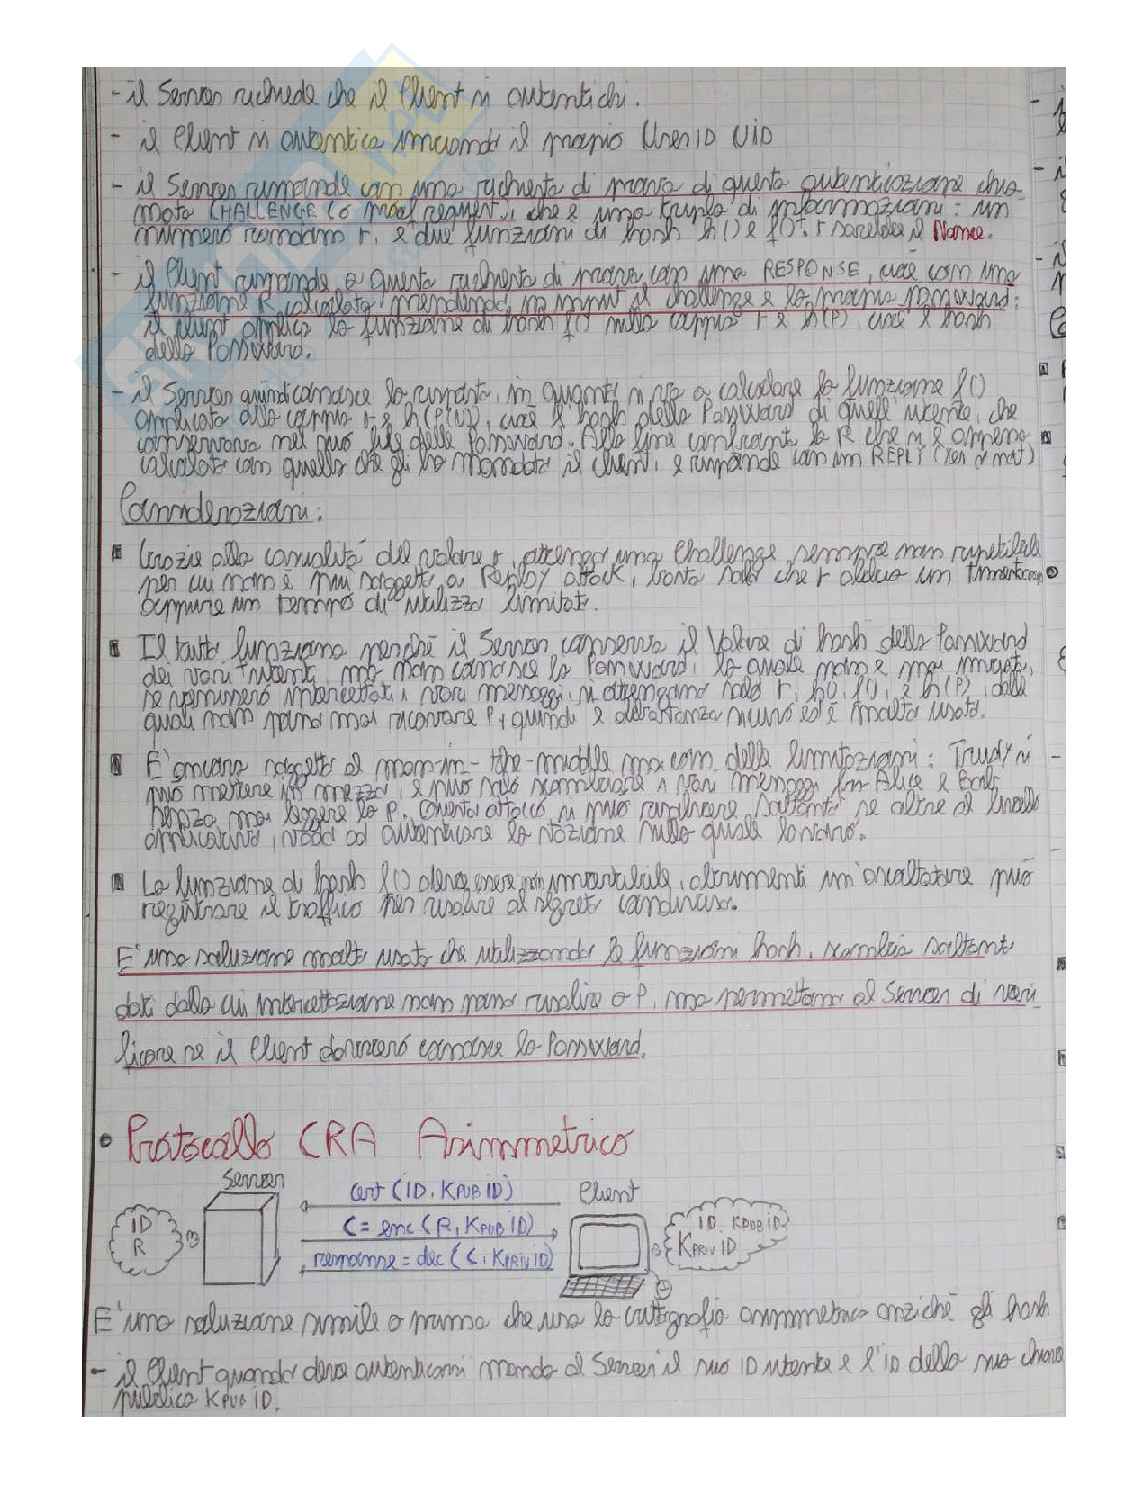 - il Server richiede che il Client si autentichi.
- il Client si autentica inviando il proprio UserID UID
- il Server risponde con una richiesta di prova di questa autenticazione chia-
mata CHALLENGE (o proof request), che è una tripla di informazioni: un
numero random r, e due funzioni di hash h() e f(). r sarebbe il Nonce.
- il Client risponde a questa richiesta di prova con una RESPONSE, cioè con una
funzione R calcolata prendendo in input il challenge e la propria password:
il client applica la funzione di hash f() sulla coppia r e h(P), cioè l'hash
della Password.
- il Server quindi conosce la risposta, in quanto si va a calcolare la funzione f()
applicata alla coppia r e h(P(U)), cioè l'hash della Password di quell'utente, che
conservava nel suo file delle Password. Alla fine confronta la R che si è appena
calcolata con quella che gli ha mandato il client, e risponde con un REPLY (yes or not)
Considerazioni:
Grazie alla casualità del valore r, ottengo una Challenge sempre non ripetibile
per cui non è più soggetto a Replay attack, basta solo che r abbia un Timestamp
oppure un tempo di utilizzo limitato.
Il tutto funziona perchè il Server conserva il Valore di hash della Password
dei vari utenti, ma non conosce la Password, la quale non è mai inviata,
se venissero intercettati i vari messaggi, si ottengono solo r, h(), f(), e h(P), dalle
quali non posso mai ricavare P, quindi è abbastanza sicuro ed è molto usato.
È ancora soggetto al man-in-the-middle ma con delle limitazioni: Trudy si
può mettere in mezzo, e può solo scambiare i vari messaggi fra Alice e Bob,
senza mai leggere la P. Questo attacco si può risolvere soltanto se oltre al livello
applicativo, vado ad autenticare la stazione sulla quale lavoro.
La funzione di hash f() deve essere non invertibile, altrimenti un ascoltatore può
registrare il traffico per risalire al segreto condiviso.
E' una soluzione molto usata che utilizzando le funzioni hash, scambia soltanto
dati dalla cui intercettazione non posso risalire a P, ma permettono al Server di veri-
ficare se il Client davvero conosce la Password.
Protocollo CRA Asimmetrico
Server
cert (ID, KPUB ID)
Client
C = enc (R, KPUB ID)
response = dec (C, KPRIV ID)
ID
R
ID KPUB ID
KPRIV ID
E' una soluzione simile a prima che usa la crittografia asimmetrica anzichè gli hash
- il Client quando deve autenticarsi manda al Server il suo ID utente e l'ID della sua chiave
pubblica KPUB ID.